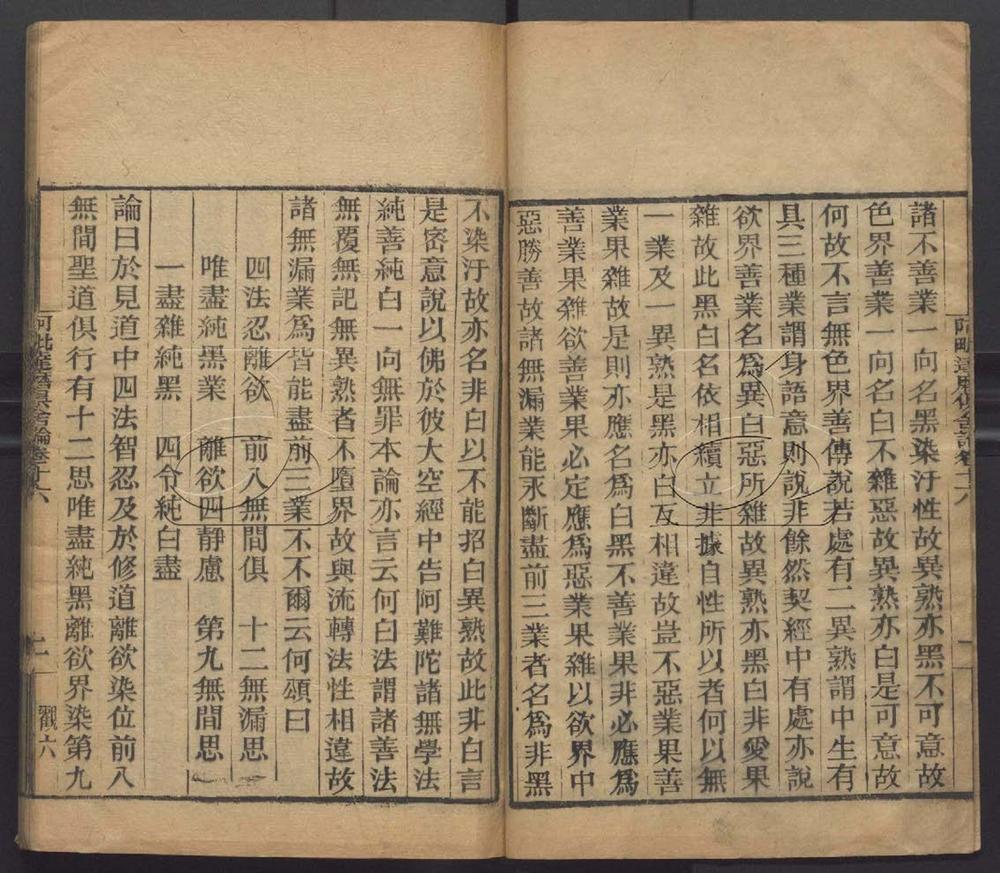 諸不善業一向名黑染汙性故異熟亦黑不可意故
色界善業一向名白不雜惡故異熟亦白是可意故
何故不言無色界善傳說若處有二異熟謂中生有
具三種業謂身語意則說非餘然契經中有處亦說
欲界善業名爲異白惡所雜故異熟亦黑白非愛果
雜故此黑白名依相續立非據自性所以者何以無
一業及一異熟是黑亦白互相違故豈不惡業果善
業果雜故是則亦應名爲白黑不善業果非必應爲
善業果雜欲善業果必定應爲惡業果雜以欲界中
惡勝善故諸無漏業能永斷盡前三業者名爲非黑
不染汙故亦名非白以不能招白異熟故此非白言
是密意說以佛於彼大空經中告阿難陀諸無學法
純善純白一向無罪本論亦言云何白法謂諸善法
無覆無記無異熟者不墮界故與流轉法性相違故
諸無漏業爲皆能盡前三業不不爾云何頌曰
四法忍離欲 前八無間俱 十二無漏思
唯盡純黑業 離欲四靜慮 第九無間思
一盡雜純黑 四令純白盡
論曰於見道中四法智忍及於修道離欲染位前八
無間聖道俱行有十二思唯盡純黑離欲界染第九
阿毗達磨俱舍論卷十六 二 觀六